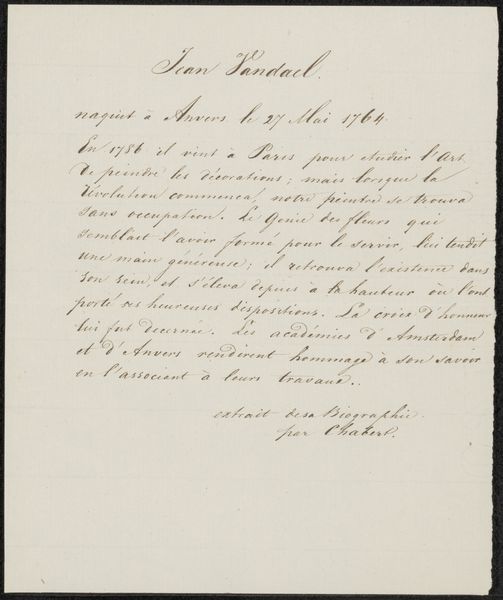 Jean Vandael.
naquit à Anvers le 27 Mai 1764.
En 1786 il vint à Paris pour etudier l'Art
de peindre les décorations; mais lorsque la
révolution commença, notre peintre se trouva
sans occupation. Le Genie des fleurs qui
semblait l'avoir formé pour le servir, lui tendit
une main généreuse; il retrouva l'existence dans
son sein, et s'éleva depuis à la hauteur où l'ont
porté ses heureuses dispositions. La croix d'honneur
lui fut decernée. Les académies d'Amsterdam
et d'Anvers rendirent hommage à son savoir
en l'associent à leurs travaux..
extrait de sa Biographie.
par Chabert.